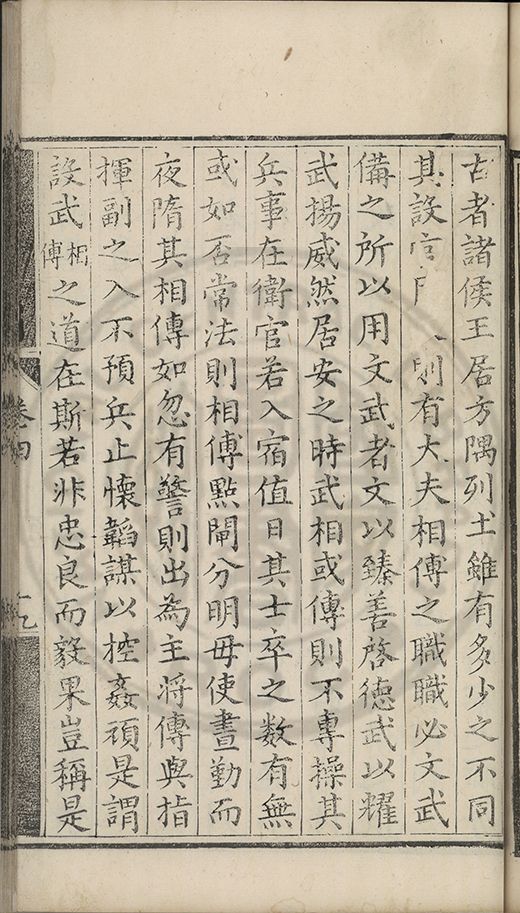 古者諸侯王居方隅列土雖有多少之不同
其設官 則有大夫相傅之職職必文武
備之所以用文武者文以臻善啓德武以耀
武揚威然居安之時武相或傅則不專操其
兵事在衛官若入宿值日其士卒之数有無
或如否常法則相傅點閘分明毋使晝勤而
夜隋其相傅如忽有警則出為主將傅與指
揮副之入不預兵止懷韜謀以控姦頑是謂
設武相傅之道在斯若非忠良而毅果豈稱是
卷四